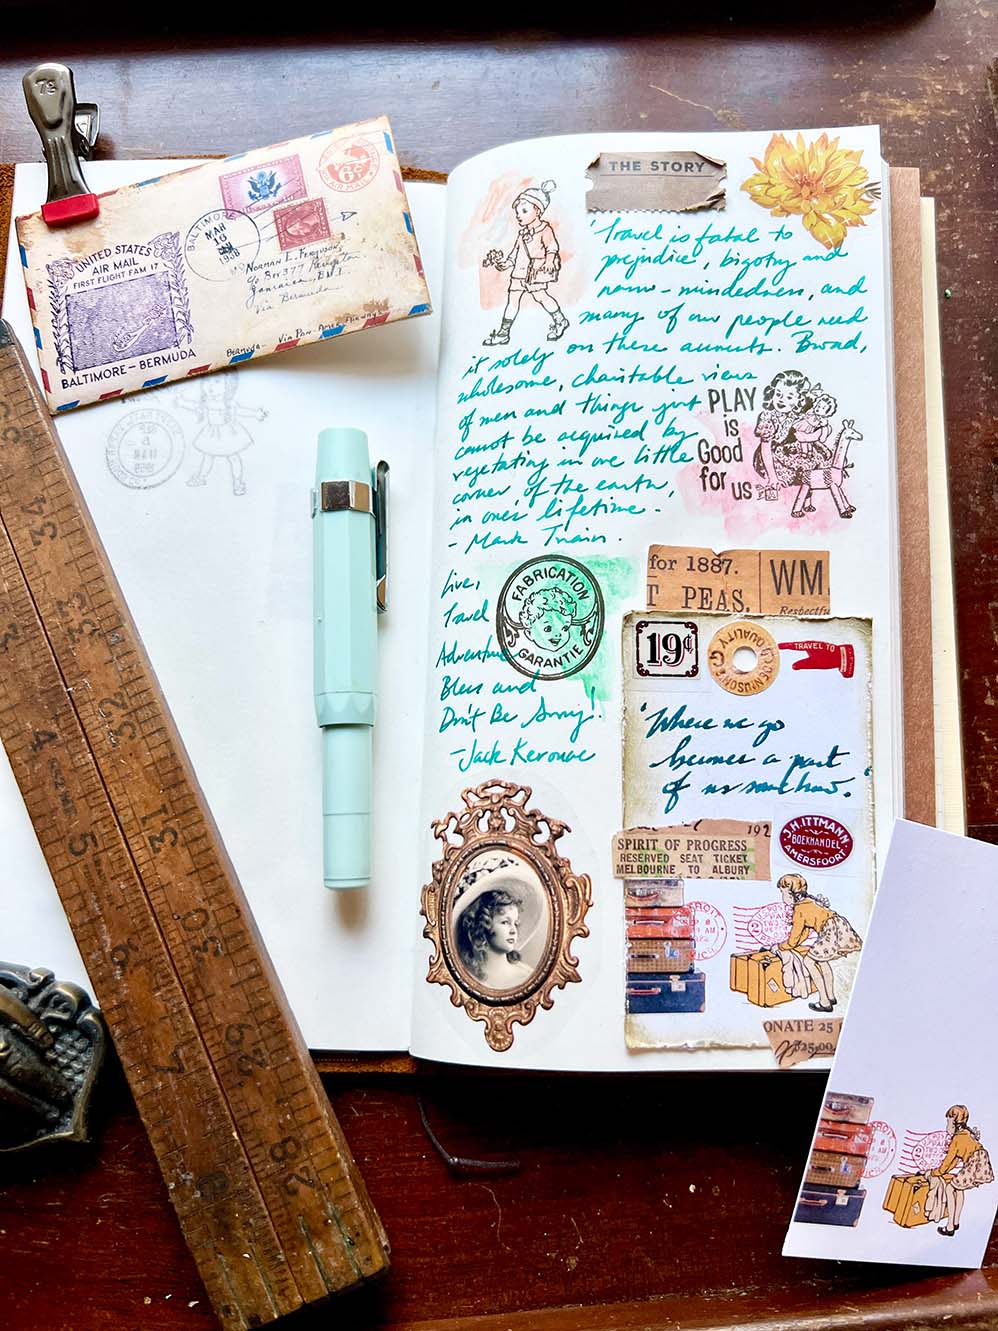 7 2
UNITED STATES
AIR MAIL
FIRST FLIGHT FAM 17
BALTIMORE – BERMUDA
BALTIMORE
MAR
16
1938
6¢
AIR MAIL
Norman E. Ferguson,
Box 377
Jamaica, B.W.I.
Via Bermuda
Bermuda – Via Pan. Amer. Airways
THE STORY
"Travel is fatal to
prejudice, bigotry and
narrow-mindedness, and
many of our people need
it solely on these accounts. Broad,
wholesome, charitable views
of men and things just
cannot be acquired by
vegetating in one little
corner of the earth,
in one's lifetime.
- Mark Twain.
PLAY
is
Good
for us
Live,
Travel
Adventure
Bless and
Don't Be Sorry!
-Jack Kerouac
FABRICATION
GARANTIE
for 1887.
T PEAS.
WM.
Respectfu
19¢
QUALITY
TRAVEL TO
"Where we go
becomes a part
of us somehow."
192
SPIRIT OF PROGRESS
RESERVED SEAT TICKET
MELBOURNE TO ALBURY
J.H. ITTMANN
BOEKHANDEL
AMERSFOORT
ONATE 25
$25.00
34
33
32
31
30
29
28